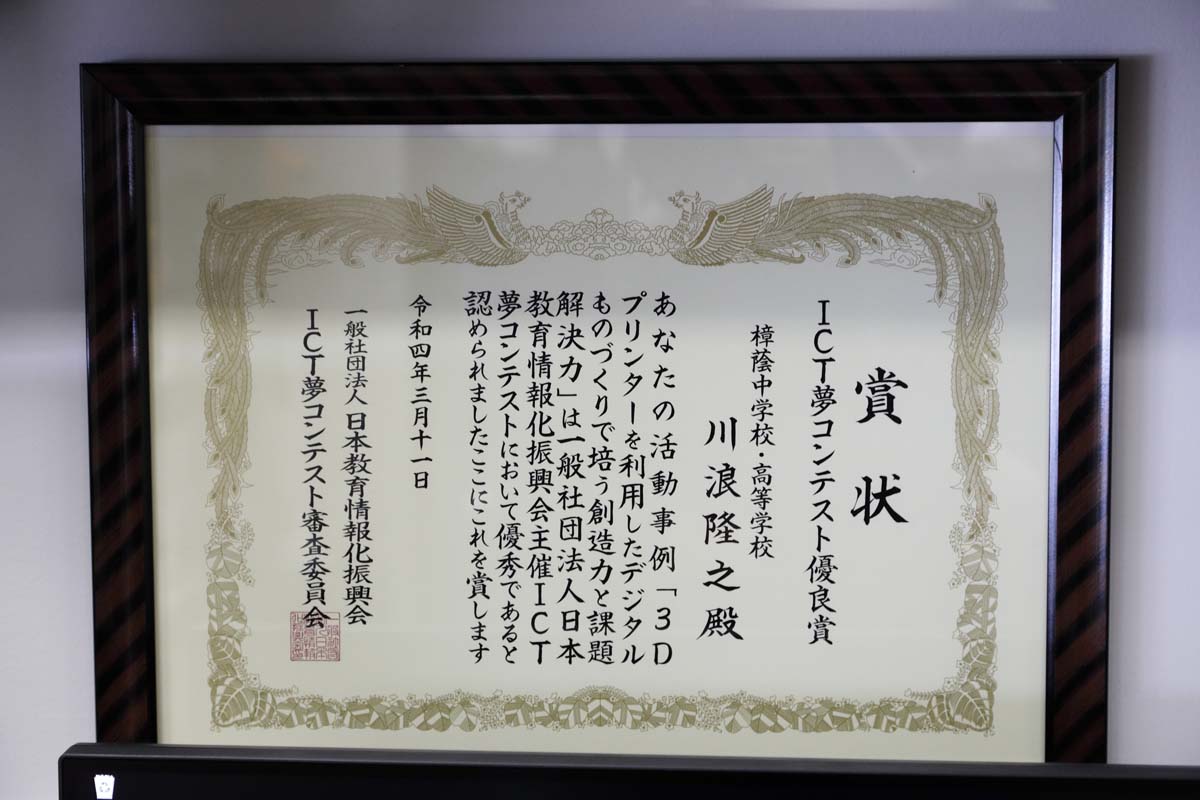 賞状
ICT夢コンテスト優良賞
樟蔭中学校・高等学校
川浪隆之殿
あなたの活動事例「3D
プリンターを利用したデジタル
ものづくりで培う創造力と課題
解決力」は一般社団法人日本
教育情報化振興会主催ICT
夢コンテストにおいて優秀であると
認められましたここにこれを賞します
令和四年三月十一日
一般社団法人日本教育情報化振興会
ICT夢コンテスト審査委員会